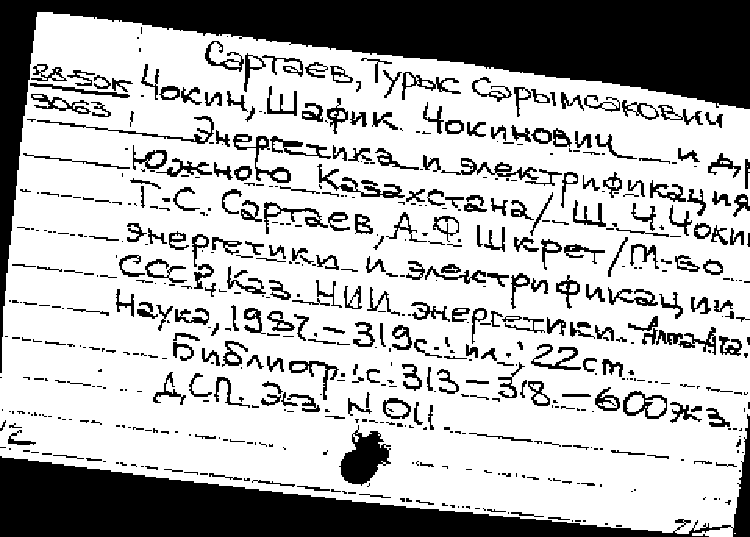 Сартаев, Турыс Сарымсакович
88-50К Чокин, Шафик Чокинович и др
3063
Энергетика и электрификация
Южного Казахстана/ Ш. Ч. Чокин
Т.С. Сартаев, А.Ф. Шкрет/М-во
энергетики и электрификации
СССР, Каз. НИИ энергетики. Алма-Ата:
Наука, 1987. – 319с.: ил.; 22cm.
Библиогр.: с. 313 – 318. – 600экз
ДСП. Экз. N 011
12